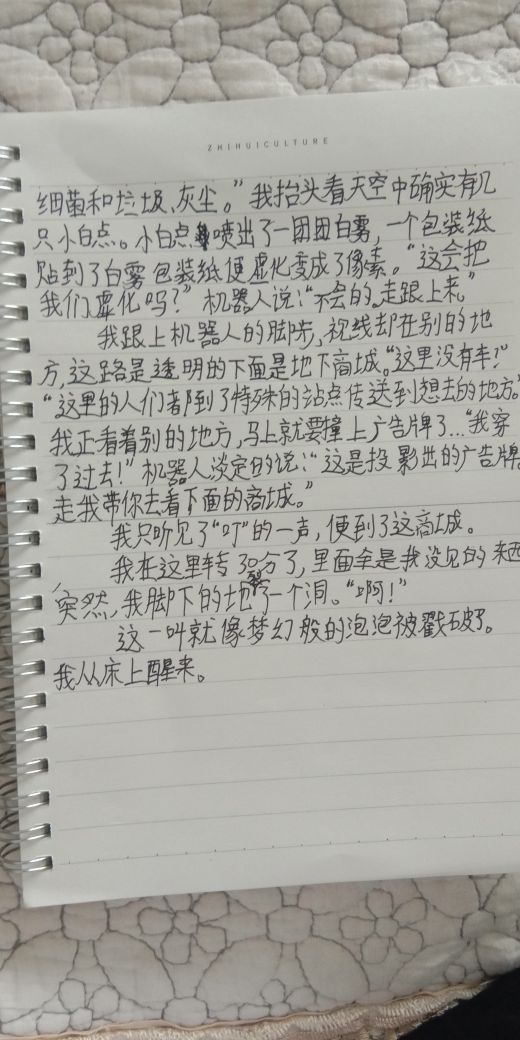 ZHIHUICULTURE
细菌和垃圾、灰尘。”我抬头看天空中确实有几
只小白点。小白点喷出了一团团白雾,一个包装纸
贴到了白雾包装纸便虚化变成了像素。“这会把
我们虚化吗?”机器人说:“不会的。走跟上来。”
我跟上机器人的脚步,视线却在别的地
方,这路是透明的下面是地下商城。“这里没有车?”
“这里的人们都到了特殊的站点传送到想去的地方。”
我正看着别的地方,马上就要撞上广告牌了…“我穿
了过去!”机器人淡定的说:“这是投影出的广告牌
走我带你去看下面的商城。”
我只听见了“叮”的一声,便到了这商城。
我在这里转30分了,里面全是我没见的东西
突然,我脚下的地了一个洞。“啊!”
这一叫就像梦幻般的泡泡被戳破了。
我从床上醒来。